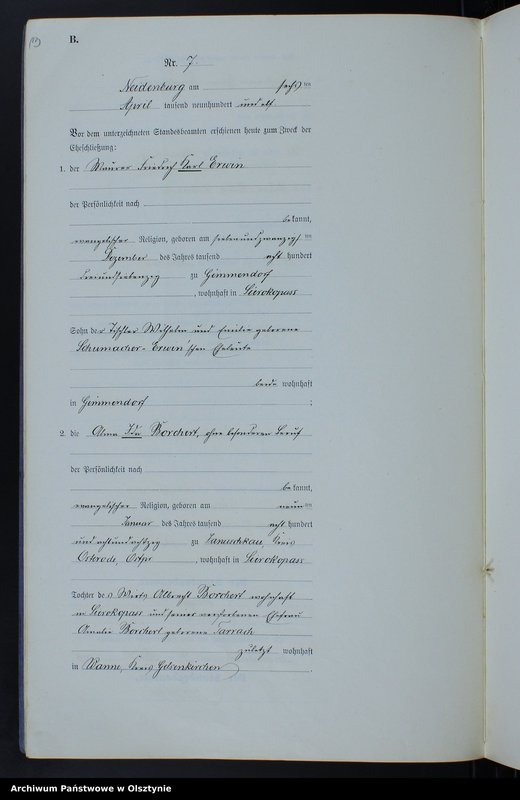 B.
Nr. 7
Neidenburg am sechsten
April tausend neunhundert und elf
Vor dem unterzeichneten Standesbeamten erschienen heute zum Zweck der
Eheschließung:
1. der Maurer Friedrich Karl Erwin
der Persönlichkeit nach
bekannt,
evangelischer Religion, geboren am siebenundzwanzigsten
Dezember des Jahres tausend acht hundert
zu Gimmendorf
, wohnhaft in Sierokopass
Sohn der Tischler Wilhelm und Emilie geborene
Schumacher- Erwin'schen Eheleute
beide wohnhaft
in Gimmendorf ;
2. die Alma Ida Borchert, ohne besonderen Beruf
der Persönlichkeit nach
bekannt,
evangelischer Religion, geboren am neunten
Januar des Jahres tausend acht hundert
und achtundachtzig zu Januschkau, Kreis
Osterode, Ostpr. , wohnhaft in Sierokopass
Tochter des Wirts Albrecht Borchert wohnhaft
in Sierokopass und seiner verstorbenen Ehefrau
Amalie Borchert geborene Tarrach
zuletzt wohnhaft
in Wanne, Kreis Gelsenkirchen .
Archiwum Państwowe w Olsztynie